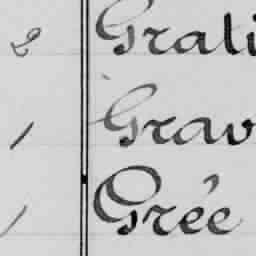 2 Grati
1 Grav
1 Grée